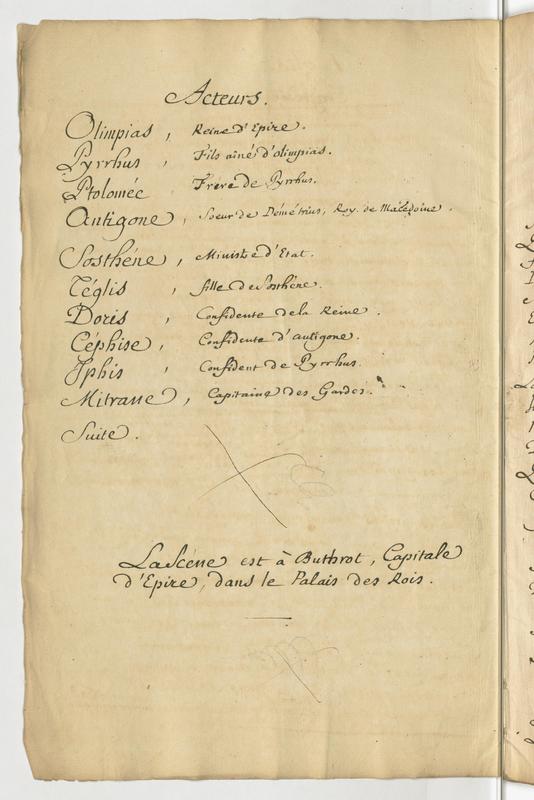 Acteurs.
Olimpias, Reine d'Epire.
Pyrrhus, Fils aîné d'olimpias.
Ptolomée Frére de Pyrrhus.
Antigone, Soeur de Démétrius, Roy. de Macédoine.
Sosthéne, Ministre d'Etat.
Téglis, fille de Sosthéne.
Doris, Confidente de la Reine.
Céphise, Confidente d'antigone.
Iphis, Confident de Pyrrhus
Mitrane, Capitaine des Gardes.
Suite.
La Scéne est à Buthrot, Capitale
d'Epire, dans le Palais des Rois.